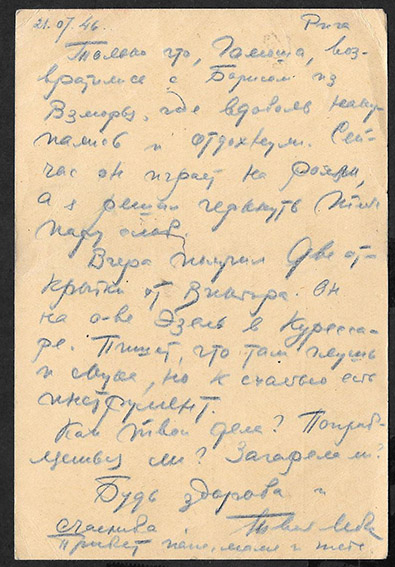 21.07.46. Рига
Только что, Галюша, воз-
вратились с Борисом из
Взморья, где вдоволь наку-
пались и отдохнули. Сей-
час он играет на рояли,
а я решил черкнуть тебе
пару слов.
Вчера получил две от-
крытки от Виктора. Он
на о-ве Эзель в Курессаа-
ре. Пишет, что там глушь
и скука, но к счастью есть
инструмент.
Как твои дела? Поправ-
ляешься ли? Загорела ли?
Будь здорова и
счастлива. Твой
Привет папе, маме и тете